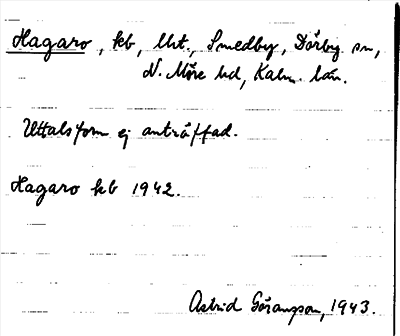 Hagaro, kb, lht., Smedby, Dörby sn,
N. Möre hd, Kalm. län.
Uttalsform ej anträffad.
Hagaro kb 1942.
Astrid Göransson, 1943.